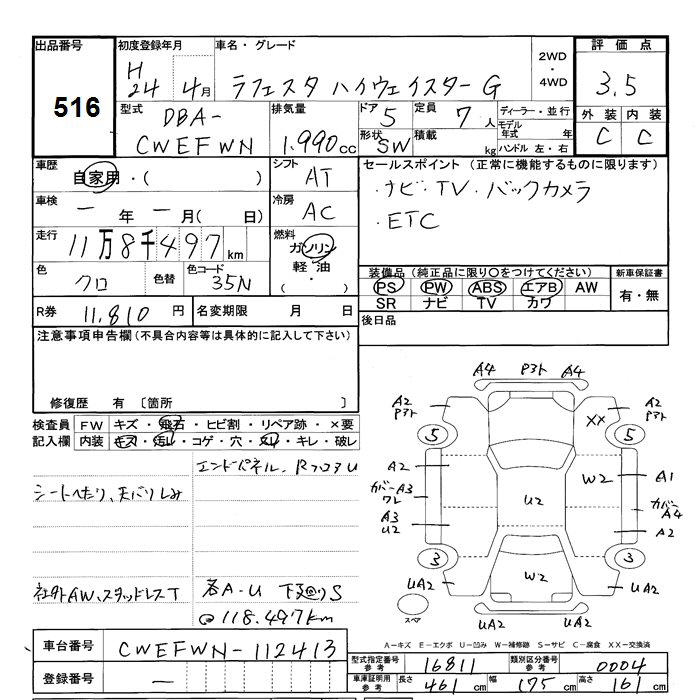 出品番号 初度登録年月 車名・グレード 2WD・4WD 評価点
516 H24年 4月 ラフェスタ ハイウェイスターG 3.5
型式 DBA-CWEFWN 排気量 1.990cc ドア 5 定員 7人 ディーラー・並行
形状 SW 積載 kg モデル年式 年 ハンドル 左・右
外装 内装
C C
車歴 自家用・( ) シフト AT
セールスポイント (正常に機能するものに限ります)
・ナビ・TV・バックカメラ
・ETC
車検 ー年 ー月( 日) 冷房 AC
走行 11万8千497km 燃料 ガソリン 軽油 ( ・ )
色 クロ 色替 色コード 35N
装備品 (純正品に限り○をつけてください) 新車保証書
PS PW ABS エアB AW 有・無
SR ナビ TV カワ
R券 11,810円 名変期限 月 日
後日品
注意事項申告欄(不具合内容等は具体的に記入して下さい)
修復歴 有 〔箇所 〕
検査員記入欄 FW キズ・飛石・ヒビ割・リペア跡・×要
内装 キズ・汚レ・コゲ・穴・スレ・キレ・破レ
シートへたり、天バリしみ
社外AW、スタッドレスT
各A-U 下廻りS
@118.497km
A4 P3ト A4
A2 P3ト XX A2 P3ト
5 5
A2 W2 A1
カバーA3 ワレ U2 カバーA4
A3 U2 A2
3 3
UA2 W2 UA2
スペア UA2 UA2
A-キズ E-エクボ U-凹み W-補修跡 S-サビ C-腐食 XX-交換済
車台番号 CWEFWN-112413
登録番号 ー
型式指定番号 参考 16811 類別区分番号 参考 0004
車庫証明用 参考 長さ 461cm 幅 175cm 高さ 161cm